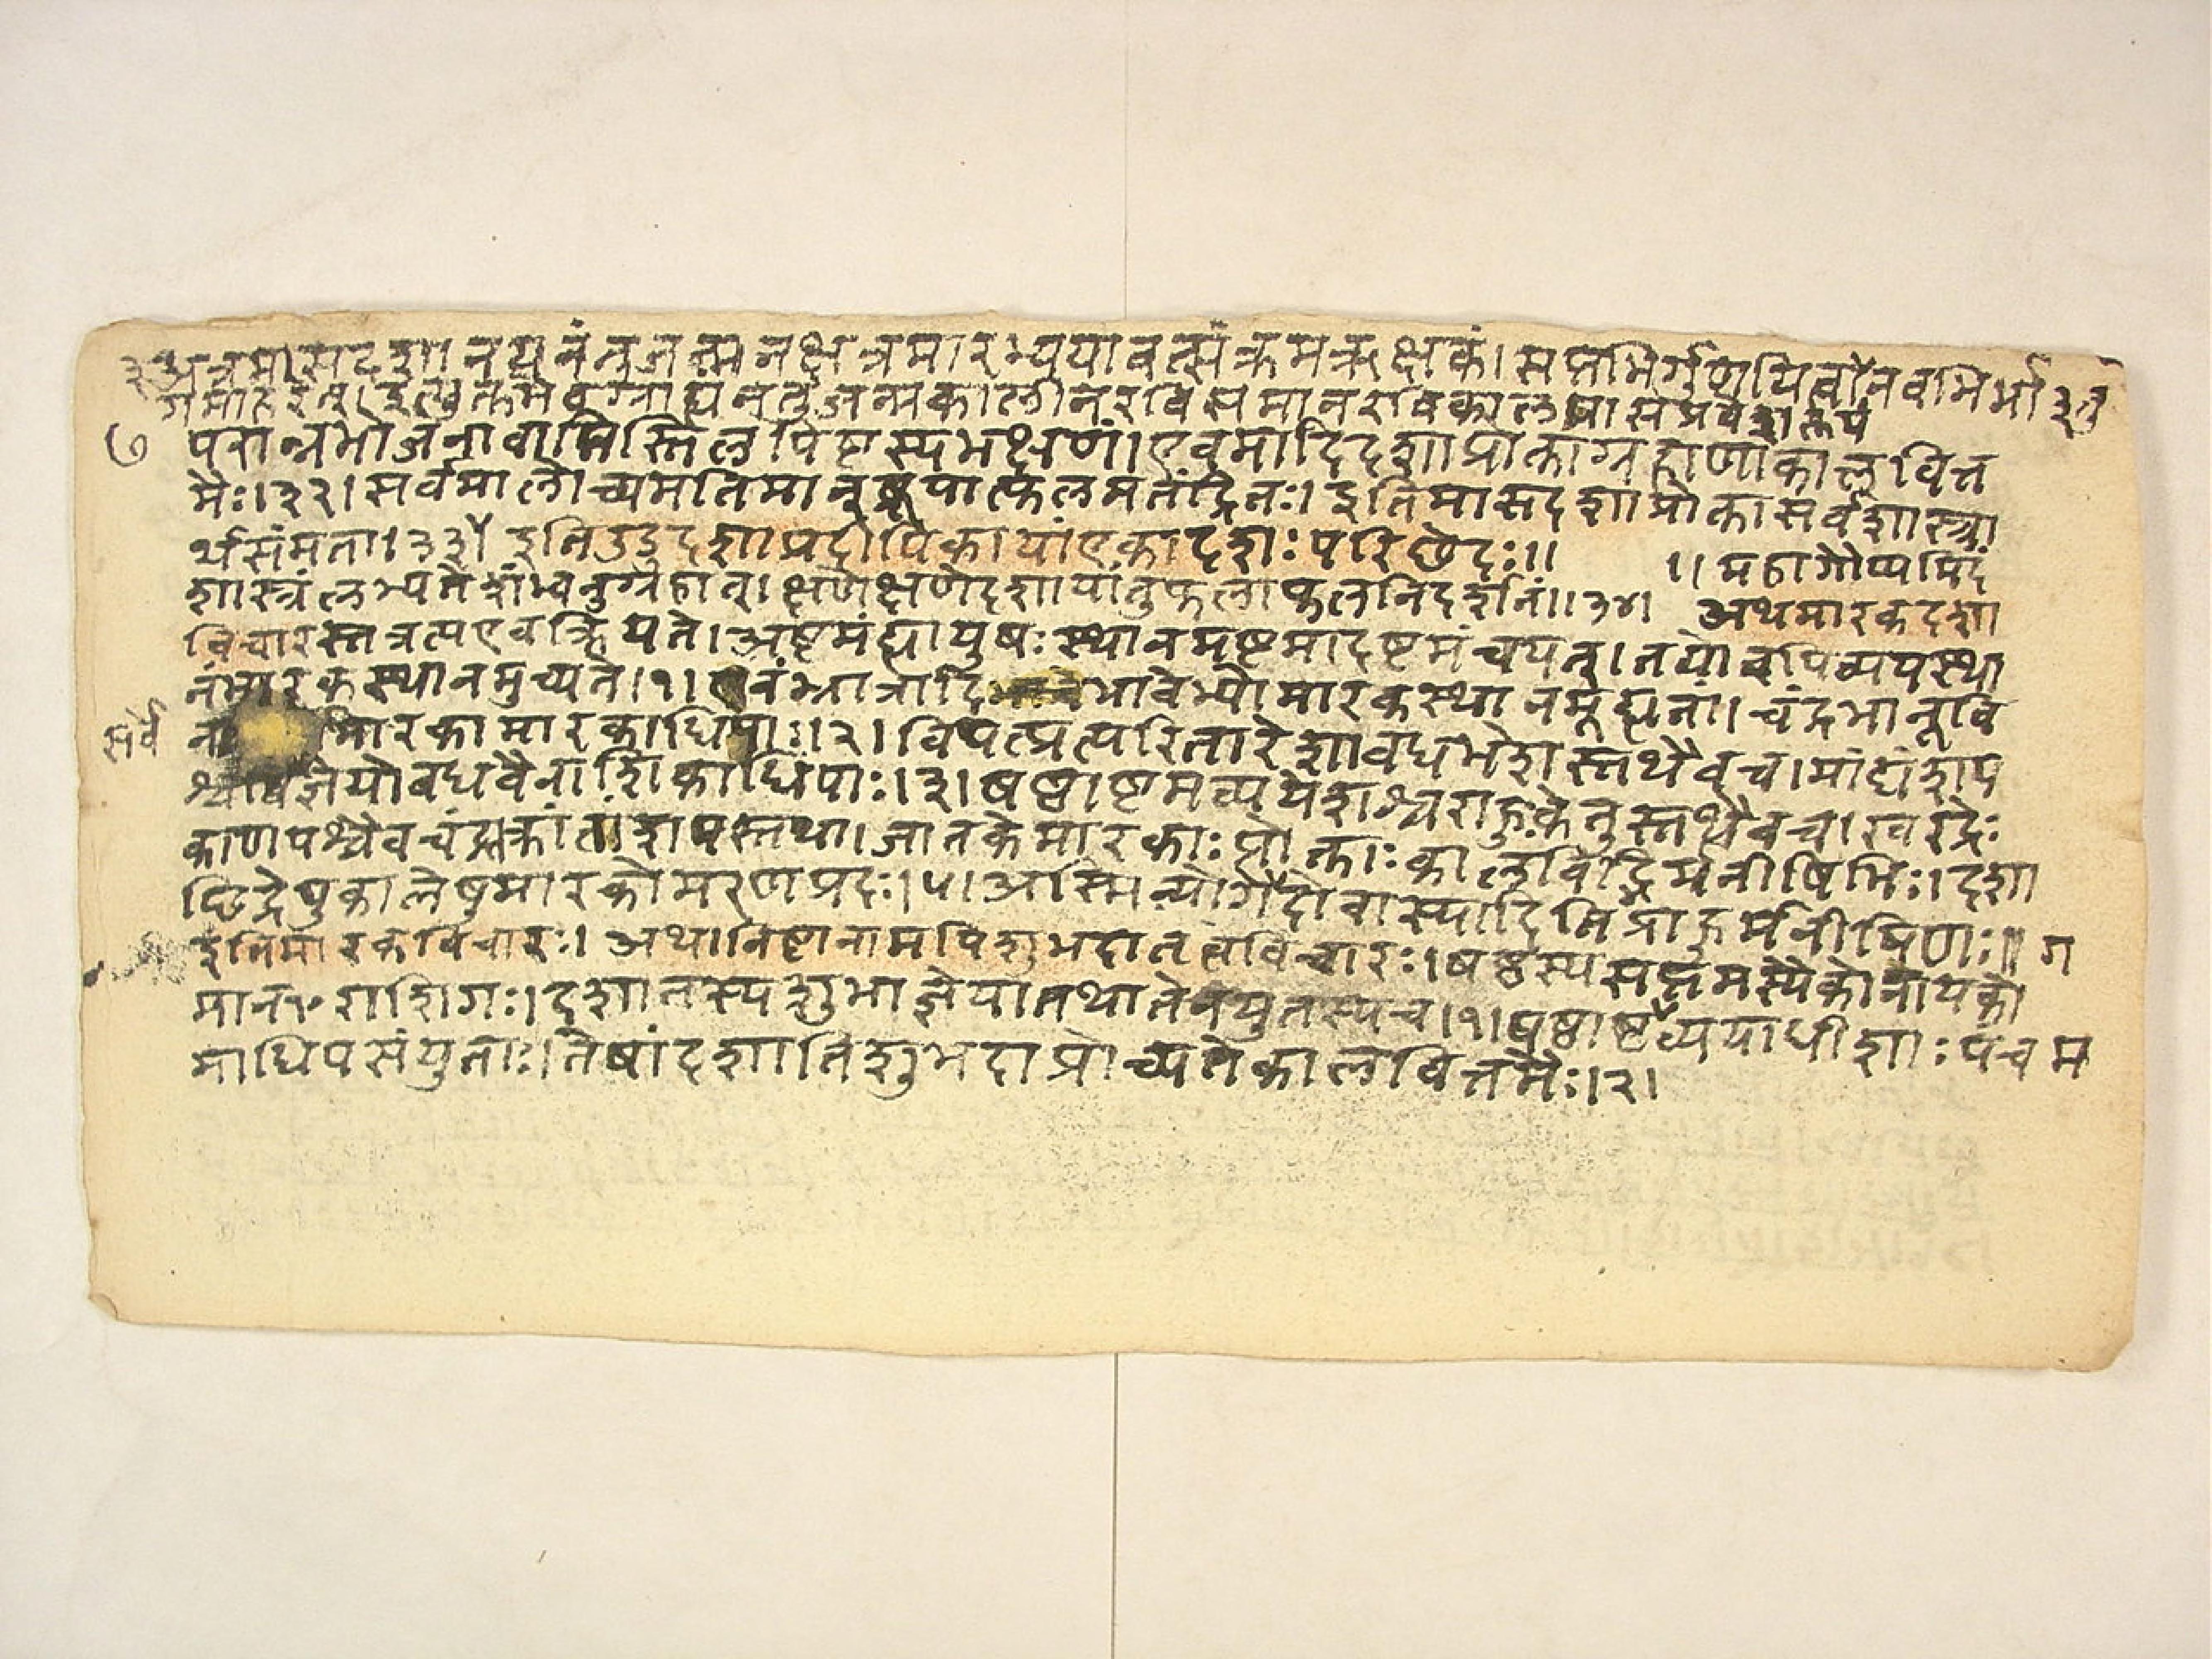 अत्रमासदशानयनंतुजन्मनक्षत्रमारभ्ययावत्संक्रमऋक्षकं। सप्तभिर्गुणयित्वौनवभिर्भा
गमाहरेत्। इत्युक्तमेवग्राह्यनतुजन्मकालीनरविसमानरविकालमासप्रवेशरूपं
परान्नभोजनावाप्तिस्तिलपिष्टस्यभक्षणं। एवमादिदशाप्रोक्ताग्रहाणांकालवित्त
मैः।३२। सर्वमालोच्यमतिमान्ब्रूयात्फलमतंद्रितः। इतिमासदशाप्रोक्तासर्वशास्त्रा
र्थसंमता।३३। इतिउडुदशाप्रदीपिकायांएकादशः परिछेदः॥ ॥महागोप्यमिदं
शास्त्रंलभ्यतेशंभ्वनुग्रहात्। क्षणेक्षणेदशायांतुफलाफलनिदर्शनं॥३४। अथमारकदशा
विचारस्तत्रत्यएवक्रियते। अष्टमंह्यायुषःस्थानमष्टमादष्टमंचयत्। तयोरपिव्ययस्था
नंमारकस्थानमुच्यते।१। एवंभ्रात्रादिभावेभ्योमारकस्थानमूह्यतां। चंद्रभानूवि
ना मारकामारकाधिपाः।२। विपत्प्रत्यरितारेशावधभेशस्तथैवच। मांद्यंशप
श्चविज्ञेयोवधवैनाशिकाधिपाः।३। षष्ठाष्टमव्ययेशाश्चराहुकेतुस्तथैवच। खरद्रे
काणपश्चैवचंद्राक्रांतांशपस्तथा। जातकेमारकाःप्रोक्ताःकालविद्भिर्मनीषिभिः। दशा
छिद्रेषुकालेषुमारकोमरणप्रदः।५। अस्मिन्योगेदोवास्यादितिप्राहुर्मनीषिणः॥
इतिमारकविचारः। अथानिष्टानामपिशुभदातृत्वविचारः। षष्ठस्यसप्तमस्यैकोनायको
मानराशिगः। दशातस्यशुभाज्ञेयातथातेनयुतस्यच।१। षष्ठाष्टव्ययाधीशाःपंचम
माधिपसंयुताः। तेषांदशातिशुभदाप्रोच्यतेकालवित्तमैः।२।
सर्वे